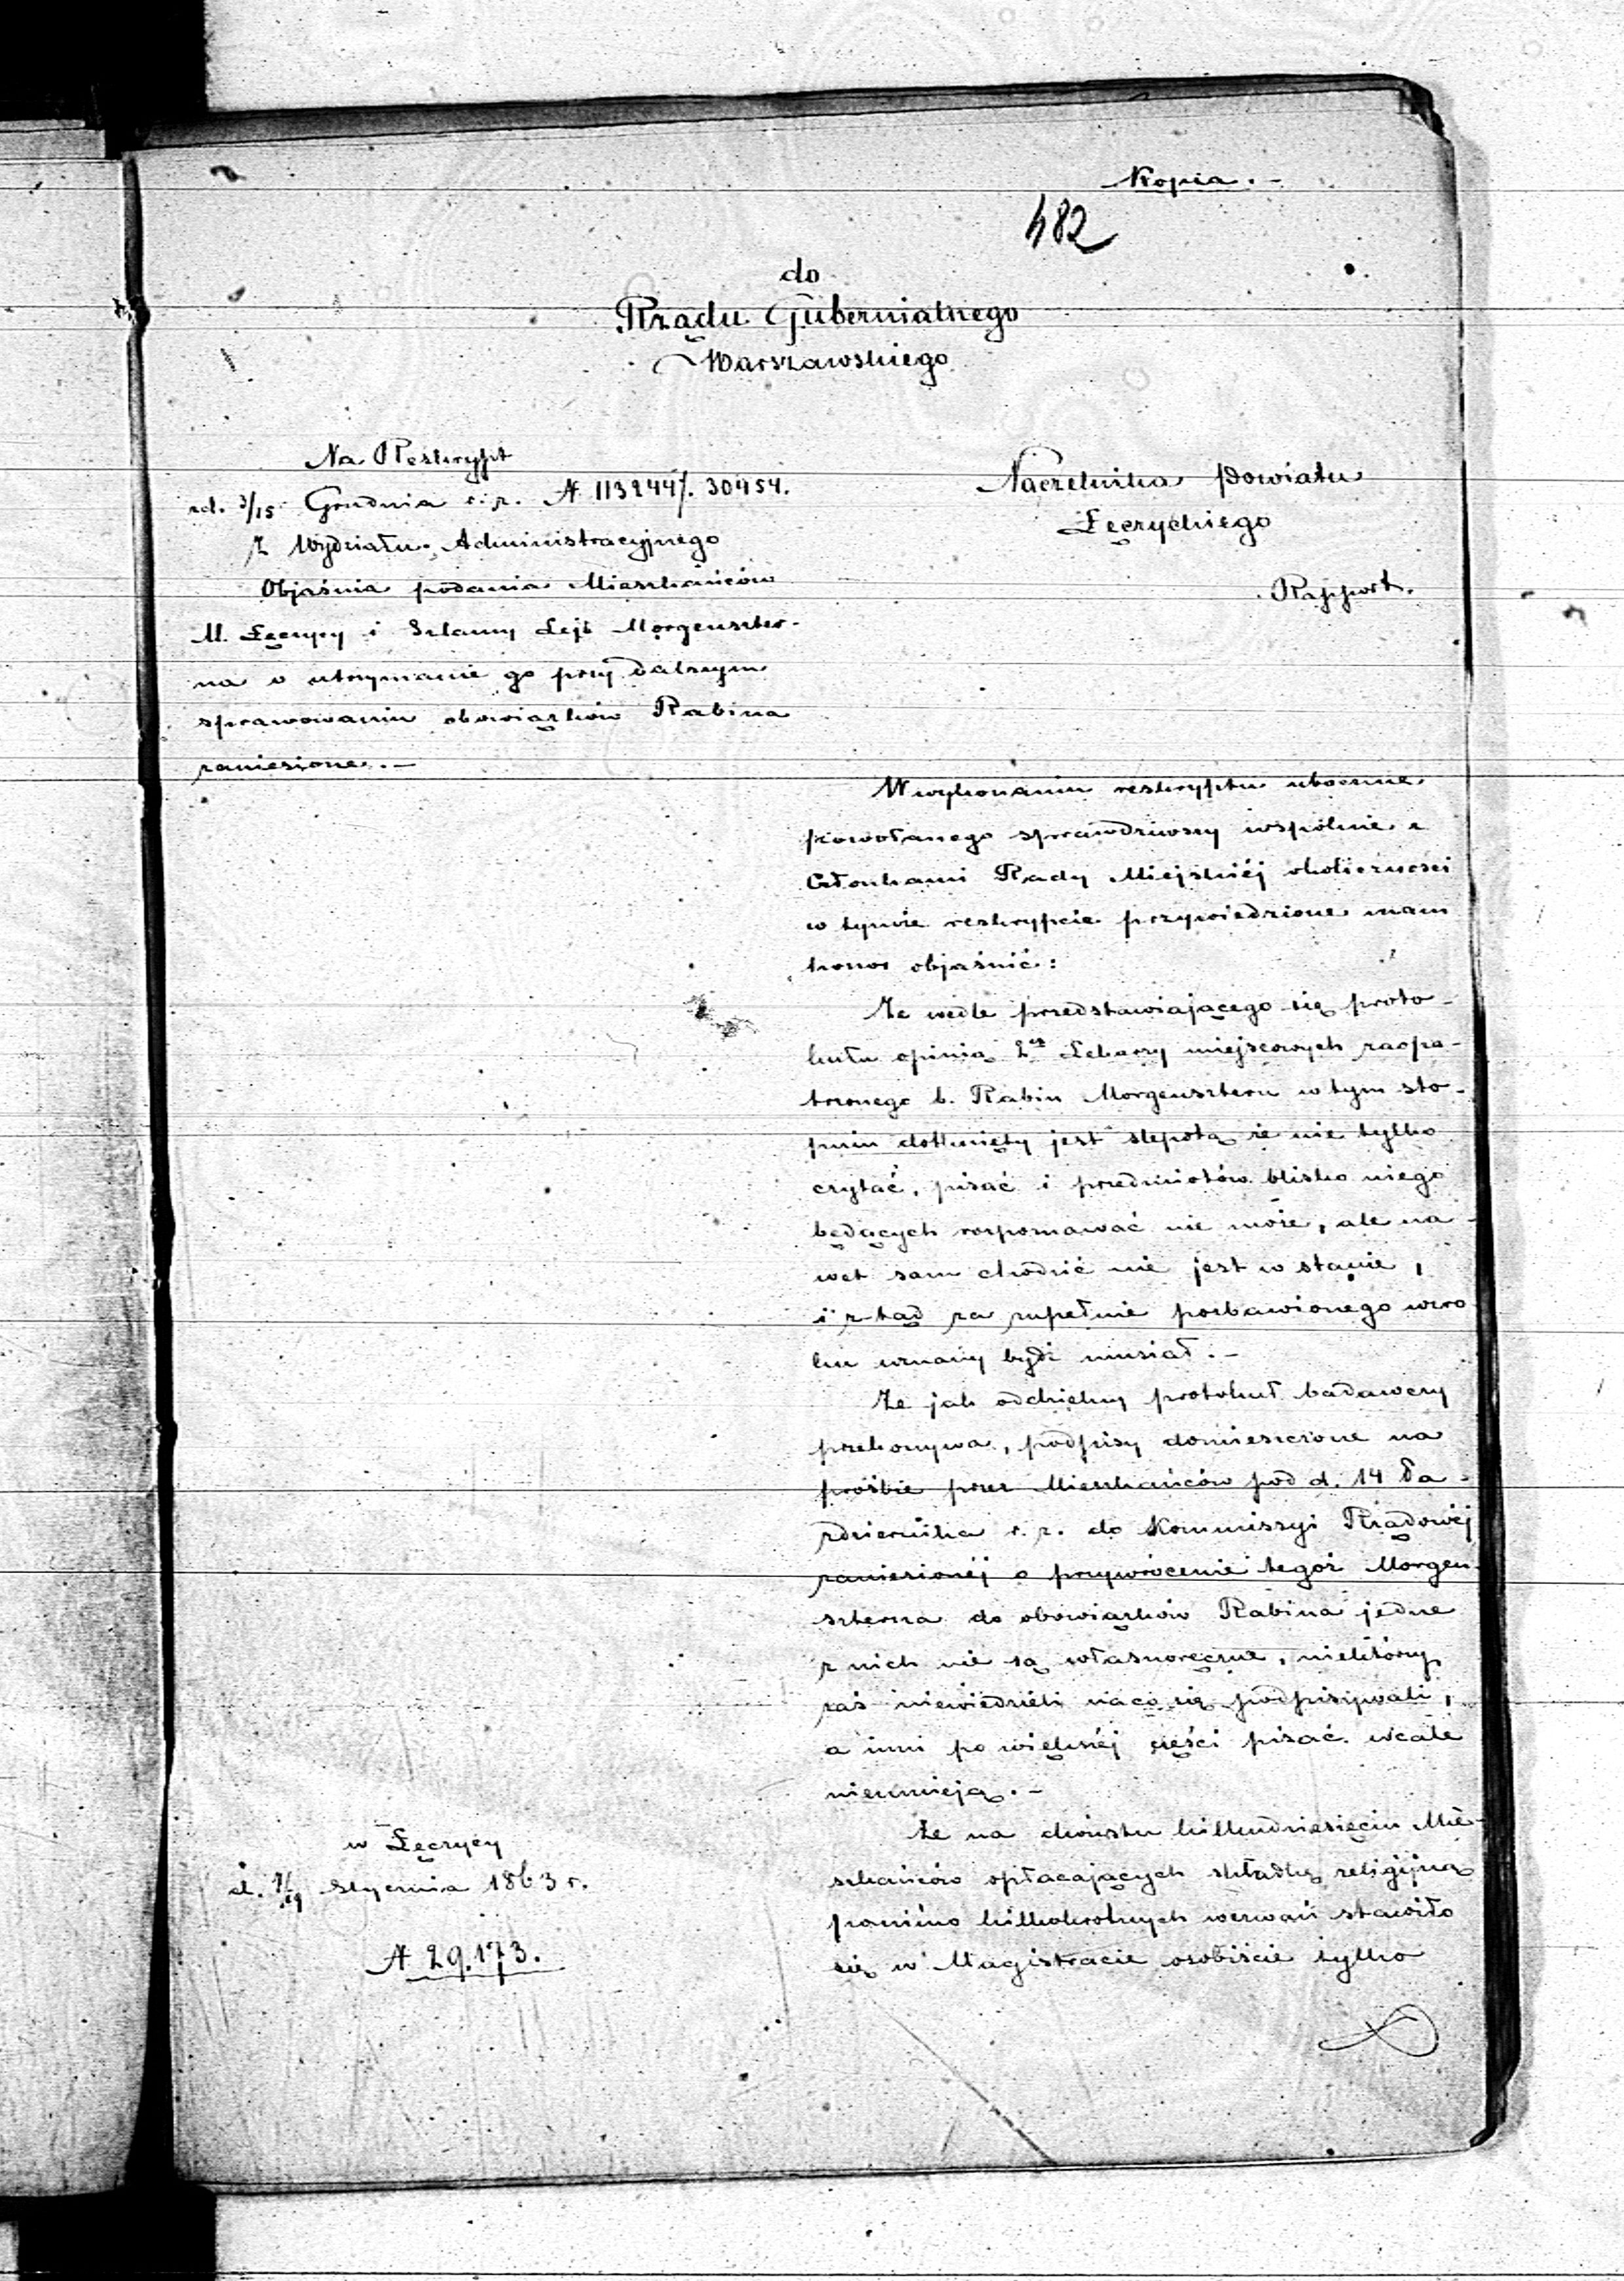 Kopia.-
482
do
Rządu Gubernialnego
Warszawskiego
Na Reskrypt
zd. 3/15 Grudnia r. z. N 113244/. 30454.
Z Wydziału Administracyjnego
Objaśnia podania Mieszkańców
M. Łęczycy i Szlamy Lejb Morgenszter-
na o utrzymanie go przy dalszym
sprawowaniu obowiązków Rabina
zaniesione.-
Naczelnika Powiatu
Łęczyckiego
Rapport.
W wykonaniu reskryptu ubocznie
powołanego sprawdziwszy wspólnie z
Członkami Rady Miejskiéj okoliczności
w tymże reskrypcie przywiedzione mam
honor objaśnić:
Że wedle przedstawiającego się proto-
kułu opinią 2ch Lekarzy miejscowych zaopa-
trzonego b. Rabin Morgensztern w tym sto-
pniu dotknięty jest ślepotą że nie tylko
czytać, pisać i przedmiotów blisko niego
będących rozpoznawać nie może, ale na-
wet sam chodzić nie jest w stanie,
i z tąd za zupełnie pozbawionego wzro-
ku uznany bydź musiał.-
Że jak oddzielny protokuł badawczy
przekonywa, podpisy domieszczone na
prośbie przez Mieszkańców pod d. 14 Pa-
ździernika r. z. do Kommissyi Rządowéj
zaniesionéj o przywrócenie tegoż Morgen-
szterna do obowiązków Rabina jedne
z nich nie są własnoręczne, niektórzy
zaś niewiedzieli na co się podpisywali,
a inni po większéj części pisać wcale
nieumieją.-
Że na dwustu kilkudziesięciu Mie-
szkańców opłacających składkę religijną
pomimo kilkokrotnych wezwań stawiło
się w Magistracie osobiście tylko
w Łęczycy
d. 7/19 Stycznia 1863 r.
N 29.173.